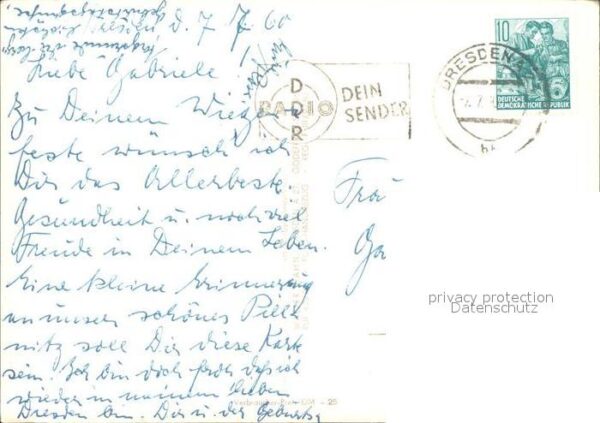 d. 7. 7. 60
Liebe Gabriele!
Zu Deinem Wiegen
feste wünsch ich
Dir das Allerbeste.
Gesundheit u. noch viel
Freude in Deinem Leben.
Eine kleine Erinnerung
an unser schönes Pill
nitz soll Dir diese Karte
sein. Ich bin doch froh daß ich
wieder in meinem lieben
Dresden bin. Dir u. der Geburts
Frä
Ga
RADIO DDR
DEIN
SENDER
DRESDEN
10
DEUTSCHE
DEMOKRATISCHE REPUBLIK
Verbraucher-Preis DM -.25
privacy protection
Datenschutz